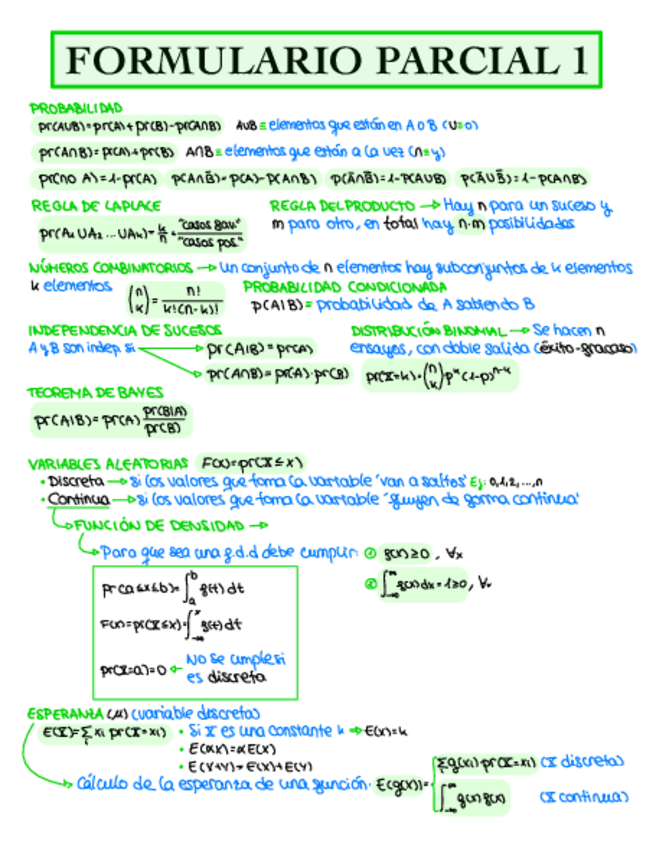 FORMULARIO PARCIAL 1
PROBABILIDAD
pr(A∪B)=pr(A)+pr(B)-pr(A∩B) A∪B = elementos que están en A o B (∪=o)
pr(A∩B)=pr(A)+pr(B) A∩B = elementos que están a la vez (∩=y)
pr(no A)=1-pr(A) p(A∩B̄)=p(A)-p(A∩B) p(Ā∩B̄)=1-p(A∪B) p(Ā∪B̄)=1-p(A∩B)
REGLA DE LAPLACE REGLA DEL PRODUCTO → Hay n para un suceso y
pr(A₁∪A₂...∪Aₖ)=k/n="casos fav."/"casos pos." m para otro, en total hay n·m posibilidades
NÚMEROS COMBINATORIOS → un conjunto de n elementos hay subconjuntos de k elementos
k elementos (n k)=n!/k!(n-k)! PROBABILIDAD CONDICIONADA
p(A|B)= probabilidad de A sabiendo B
INDEPENDENCIA DE SUCESOS DISTRIBUCIÓN BINOMIAL → Se hacen n
A y B son indep. si pr(A|B)=pr(A) ensayos, con doble salida (éxito-fracaso)
pr(A∩B)=pr(A)·pr(B) pr(X=k)=(n k)pᵏ(1-p)ⁿ⁻ᵏ
TEOREMA DE BAYES
pr(A|B)=pr(A) pr(B|A)/pr(B)
VARIABLES ALEATORIAS F(x)=pr(X≤x)
• Discreta → si los valores que toma la variable "van a saltos" Ej: 0,1,2,...,n
• Continua → si los valores que toma la variable "fluyen de forma continua"
FUNCIÓN DE DENSIDAD →
Para que sea una f.d.d debe cumplir: ① f(x)≥0, ∀x
pr(a≤x≤b)=∫ₐᵇ f(t)dt ② ∫₋∞^∞ f(x)dx=1≥0, ∀x
F(x)=pr(X≤x)=∫₋∞ˣ f(t)dt
pr(X=a)=0 ← No se cumple si
es discreta
ESPERANZA (μ) (variable discreta)
E(X)=Σ xi pr(X=xi) • Si X es una constante k → E(x)=k
• E(αX)=αE(X)
• E(X+Y)=E(X)+E(Y)
Cálculo de la esperanza de una función. E(g(x))= Σg(xi)·pr(X=xi) (X discreta)
∫₋∞^∞ g(x)f(x) (X continua)